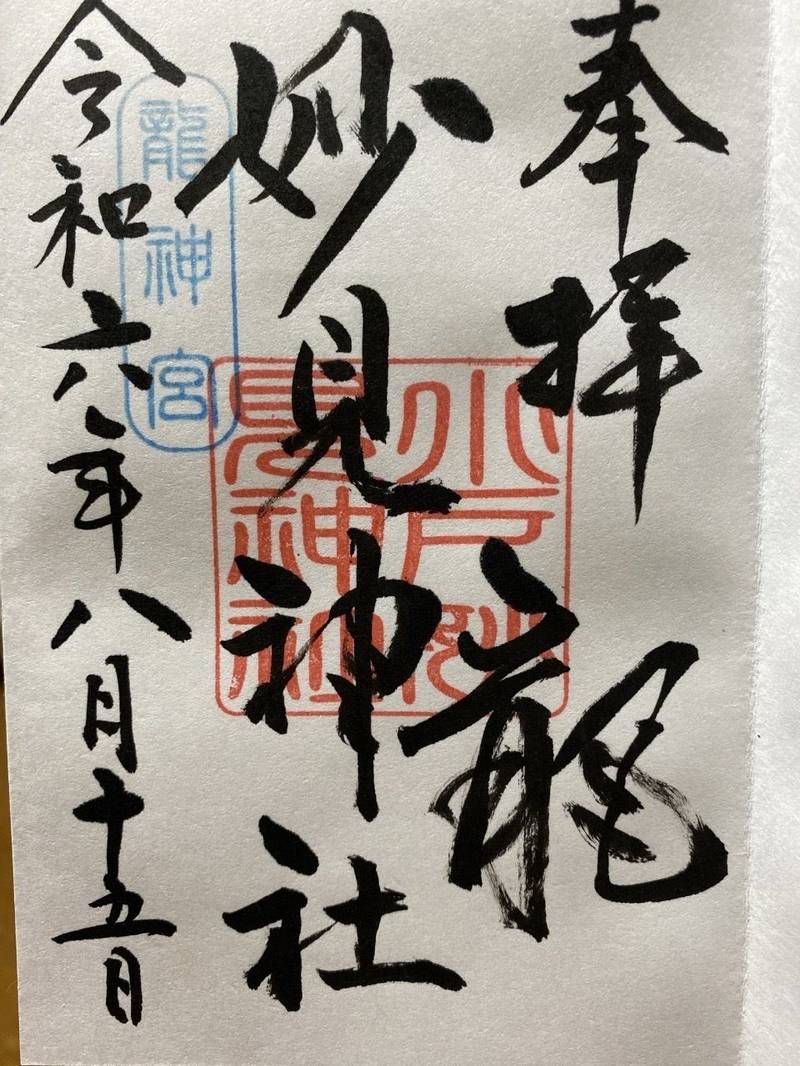 奉拝
龍
妙見神社
令和六年八月十五日
龍神宮
小戸妙
見神社